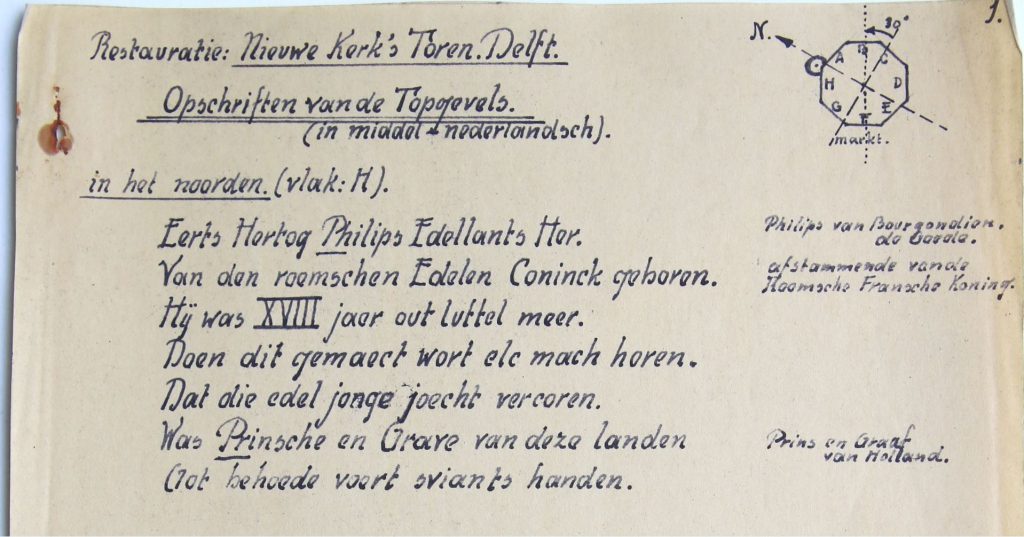 1.
Restauratie: Nieuwe Kerk's Toren. Delft.
N.
39°
A B C D E F G H
markt.
Opschriften van de Topgevels.
(in middel-nederlandsch).
in het noorden. (vlak: H).
Eerts Hertog Philips Edellants Her.
Philips van Bourgondien.
de Goede.
Van den roemschen Edelen Coninck geboren.
afstammende van de
Roomsche Fransche Koning.
Hij was XVIII jaer out luttel meer.
Doen dit gemaect wort elc mach horen.
Dat die edel jonge joecht vercoren.
Was Prinsche en Grave van deze landen
Prins en Graaf
van Holland.
Got behoede voert sviants handen.